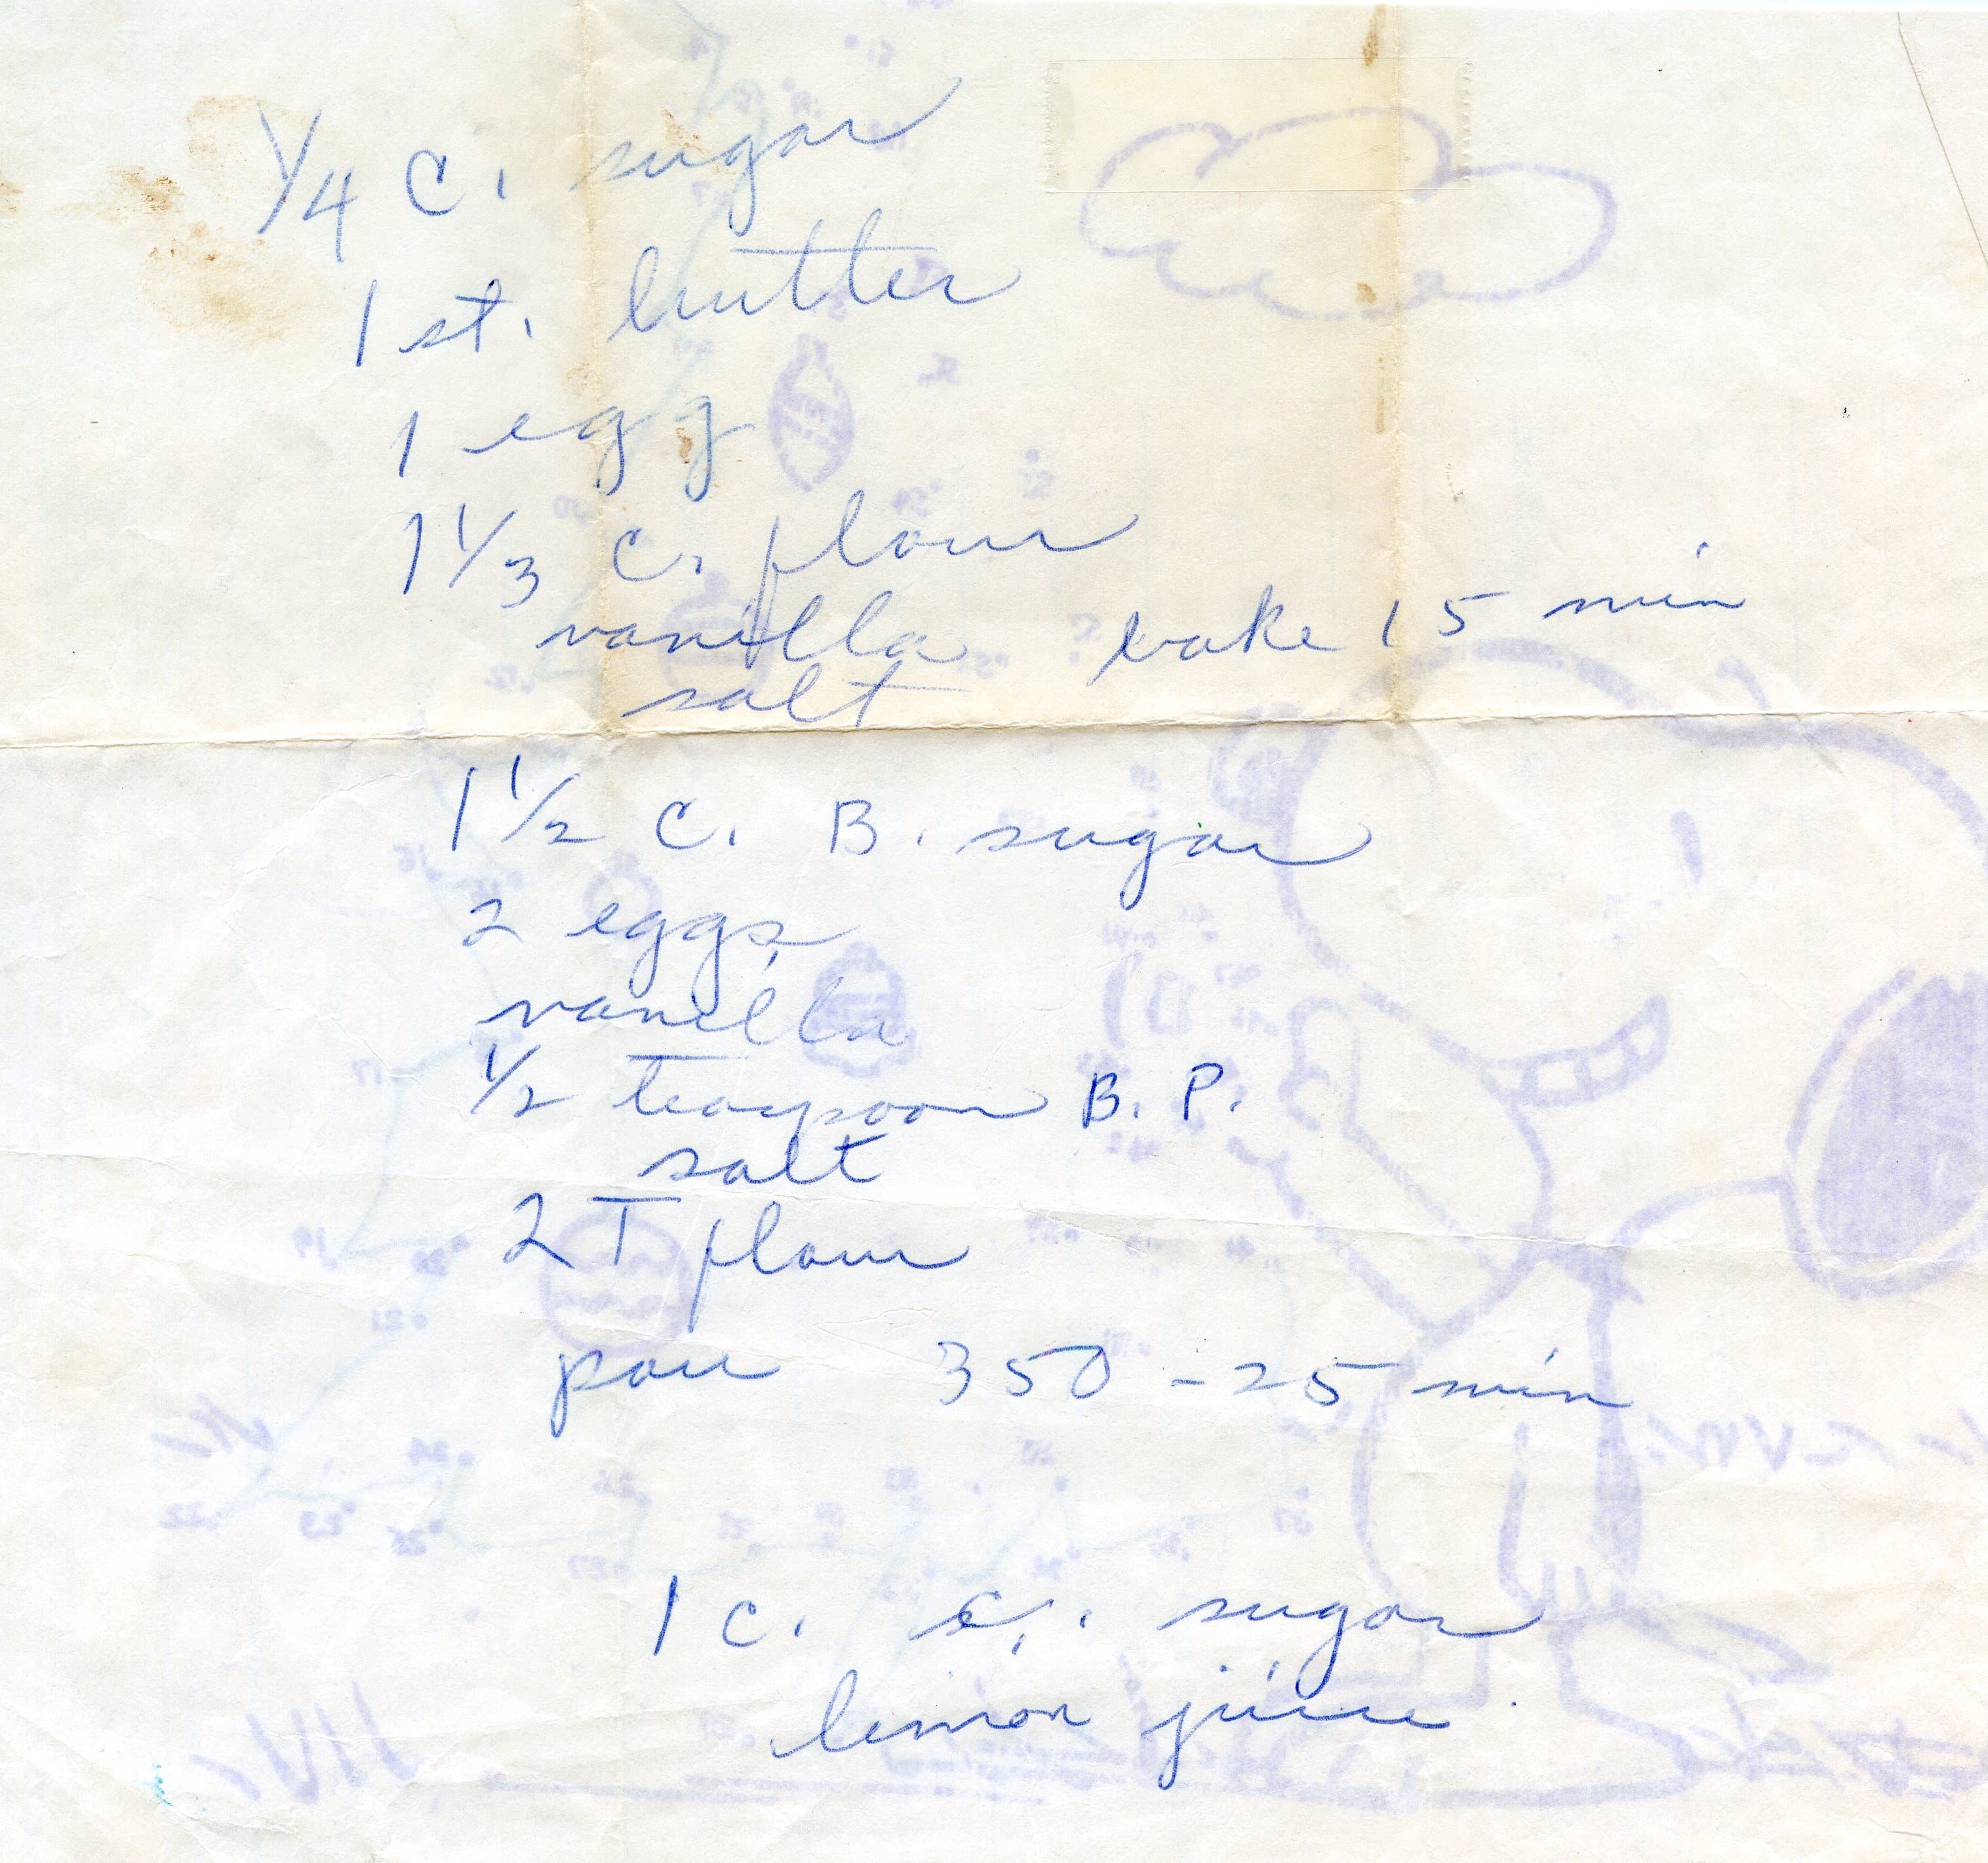 1/4 C. sugar
1 st. butter
1 egg
1 1/3 C. flour
vanilla bake 15 min
salt
1 1/2 C. B. sugar
2 eggs
vanilla
1/2 teaspoon B. P.
salt
2 T flour
pour 350 - 25 min
1 c. c. sugar
lemon juice